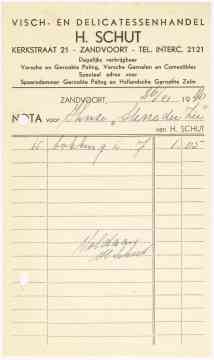 VISCH- EN DELICATESSENHANDEL
H. SCHUT
KERKSTRAAT 21 - ZANDVOORT - TEL. INTERC. 2121
Dagelijks verkrijgbaar
Versche en Gerookte Paling, Versche Garnalen en Comestibles
Speciaal adres voor
Spaarndammer Gerookte Paling en Hollandsche Gerookte Zalm
ZANDVOORT, 19
NOTA voor
van H. SCHUT
15 bokking a 7 1.05
Voldaan
H Schut